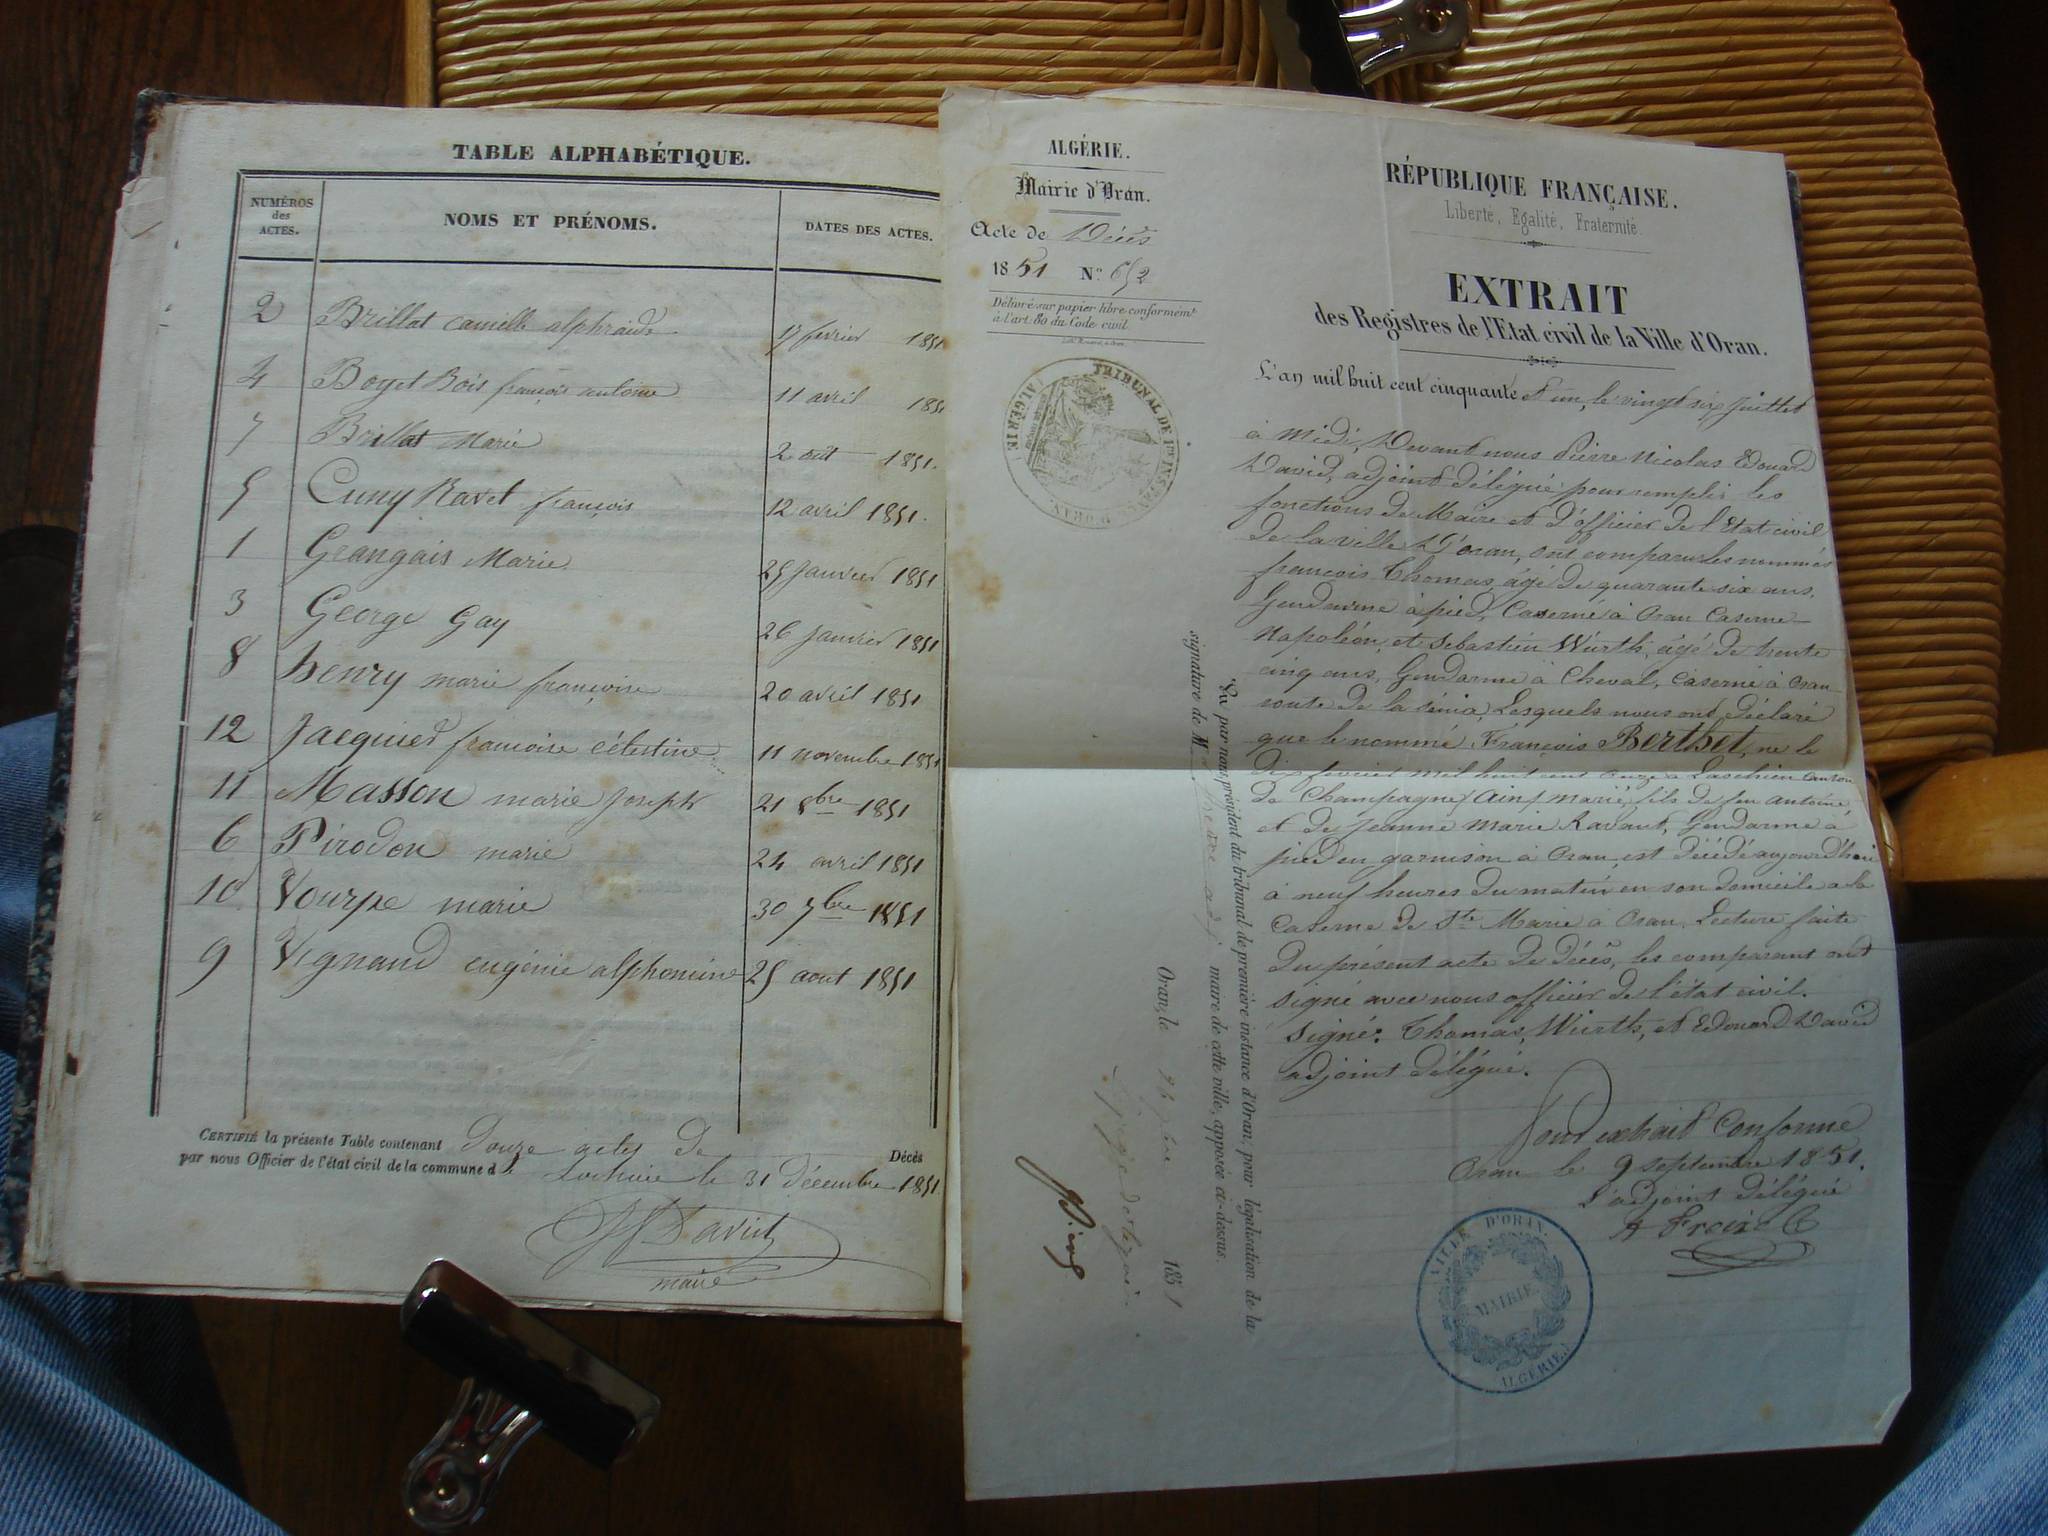 TABLE ALPHABÉTIQUE.
NUMÉROS des ACTES. NOMS ET PRÉNOMS. DATES DES ACTES.
2 Brillat camille 17 fevrier 1851
4 Boget Bois françois antoine 11 avril 185
7 Brillat Marie 2 out 1851.
5 Cuny Ravet françois 12 avril 1851.
1 Grangais Marie 25 Janvier 1851
3 George Gay 26 Janvier 1851
8 henry marie françoise 20 avril 1851
12 Jacquier francoise célestine 11 novembre 1851
11 Masson marie Joseph 21 8bre 1851
6 Pirodon marie 24 avril 1851
10 Vourpe marie 30 7bre 1851
9 Vignand eugénie alphonsine 25 aout 1851
CERTIFIÉ la présente Table contenant Douze actes de Décès
par nous Officier de l'état civil de la commune d Lochieu le 31 Décembre 1851
maire
ALGÉRIE.
Mairie d'Oran.
Acte de Décès
1851 N° 652
Délivré sur papier libre conformément
à l'art. 80 du Code civil.
TRIBUNAL DE 1re INSTANCE D'ORAN (ALGERIE)
RÉPUBLIQUE FRANÇAISE.
Liberté, Egalité, Fraternité.
EXTRAIT
des Registres de l'Etat civil de la Ville d'Oran.
L'an mil huit cent cinquante et un, le vingt six Juillet
à Midi, Devant nous Pierre Nicolas Edouard
David, adjoint délégué pour remplir les
fonctions de Maire et d'officier de l'Etat civil
de la ville D'oran, ont comparu les nommés
françois Thomas, âgé de quarante six ans,
Gendarme à pied, Caserné à Oran Caserne
Napoléon, et Sébastien Würth, âgé de trente
cinq ans, Gendarme à Cheval, Caserné à Oran
route de la sénia, Lesquels nous ont déclaré
que le nommé François Berthet, né le
dix fevrier mil huit cent onze à Laschieu canton
de Champagne (Ain) marié, fils de feu Antoine,
et de Jeanne Marie Ravaut, Gendarme à
pied en garnison à Oran, est décédé aujourd'hui
à neuf heures du matin en son domicile a la
Caserne de Ste Marie à Oran. Lecture faite
du présent acte de Décès, les comparant ont
signé avec nous officier de l'état civil.
Signé: Thomas, Würth, et Edouard David
adjoint délégué.
Pour extrait Conforme
Oran le 9 septembre 1851.
L'adjoint délégué
VILLE D'ORAN.
MAIRIE
ALGÉRIE.
Vu par nous, président du tribunal de première instance d'Oran, pour légalisation de la
signature de M maire de cette ville, apposée ci-dessus.
Oran, le 1851